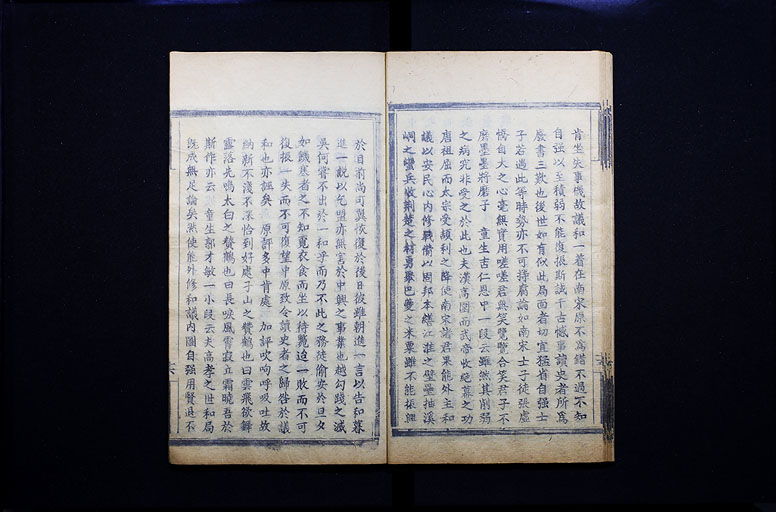 肯坐失事機故議和一著在南宋原不為錯不過不知
自强以至積弱不能復振斯誠千古憾事讀史者所為
廢書三歎也後世如有似此局面者切宜猛省自强士
子若遇此等時勢亦不可持腐論如南宋士子徒張虛
憍自大之心毫無實用嗟嗟君無笑覽覽合笑君子不
磨墨墨將磨子 童生吉仁恩中一段云雖然其削弱
之病究非受之於此也夫漢高圍而武帝收絶幕之功
唐祖屈而太宗受頡利之降使南宋諸君果能外主和
議以安民心內修戰備以固邦本繕江淮之壁壘抽溪
峒之蠻兵收荆楚之材勇聚巴夔之米粟雖不能振興
於目前尚可冀恢復於後日彼雖朝進一言以告和暮
進一說以乞盟亦無害於中興之事業也越勾踐之滅
吳何嘗不出於一和乎而乃不此之務徒偷安於旦夕
如饑寒者之不知覓衣食而坐以待斃迨一敗而不可
復振一失而不可復望中原致令讀史者之歸咎於議
和也亦誣矣 原評多中肯處 加評吹呴呼吸吐故
納新不淺不深恰到好處子山之贊鶴也曰雲飛欲舞
露落先鳴太白之贊鶴也曰長唳風宵寂立霜曉吾於
斯作亦云 童生郭才敏一小段云夫高孝之世和局
既成無足論矣然使能外修和議內圖自强用賢退不